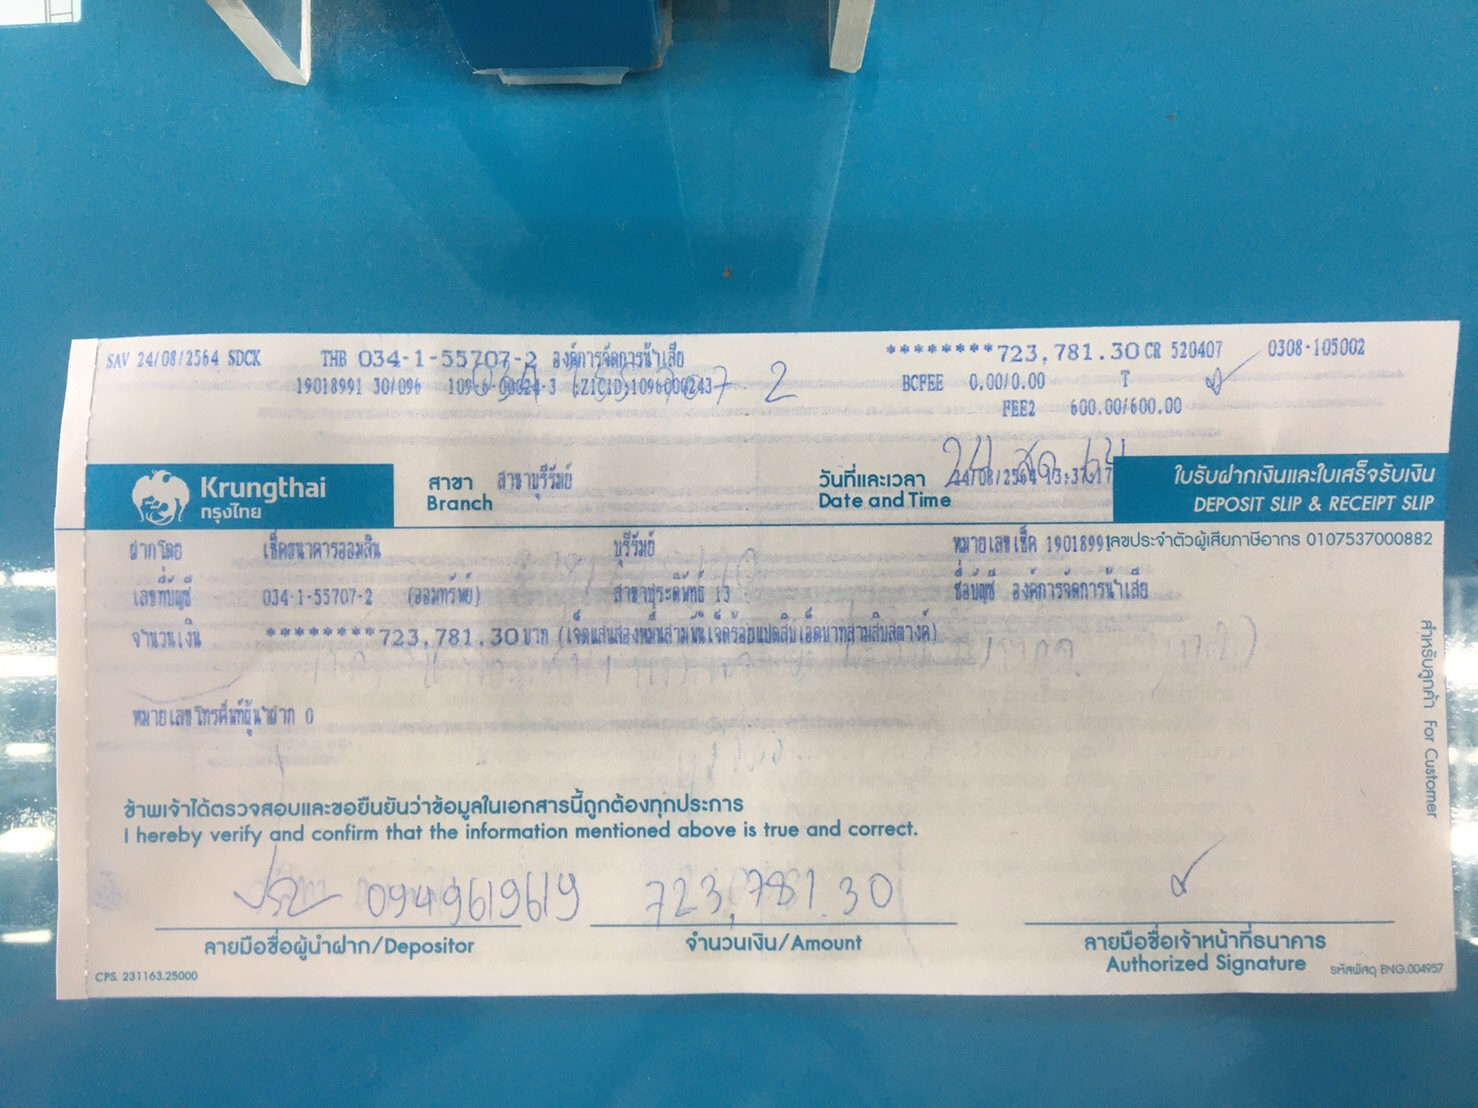 SAV 24/08/2564 SDCK THB 034-1-55707-2 องค์การจัดการน้ำเสีย ********723,781.30 CR 520407 0308-105002
19018991 30/096 1096-00024-3 (ZICID)1096000243 BCFEE 0.00/0.00 T
FEE2 600.00/600.00
Krungthai
กรุงไทย
สาขา สาขาบุรีรัมย์
Branch
วันที่และเวลา 24/08/2564 13:37:17
Date and Time
24 สค 64
ใบรับฝากเงินและใบเสร็จรับเงิน
DEPOSIT SLIP & RECEIPT SLIP
ฝากโดย เช็คธนาคารออมสิน บุรีรัมย์ หมายเลขเช็ค 19018991 เลขประจำตัวผู้เสียภาษีอากร 0107537000882
เลขที่บัญชี 034-1-55707-2 (ออมทรัพย์) สาขาประดิพัทธ์ 13 ชื่อบัญชี องค์การจัดการน้ำเสีย
จำนวนเงิน ********723,781.30บาท (เจ็ดแสนสองหมื่นสามพันเจ็ดร้อยแปดสิบเอ็ดบาทสามสิบสตางค์)
หมายเลขโทรศัพท์ผู้นำฝาก 0
สำหรับลูกค้า For Customer
ข้าพเจ้าได้ตรวจสอบและขอยืนยันว่าข้อมูลในเอกสารนี้ถูกต้องทุกประการ
I hereby verify and confirm that the information mentioned above is true and correct.
0949619619 723,781.30
ลายมือชื่อผู้นำฝาก/Depositor จำนวนเงิน/Amount ลายมือชื่อเจ้าหน้าที่ธนาคาร
Authorized Signature
CPS. 231163.25000 รหัสพัสดุ BNG.004957